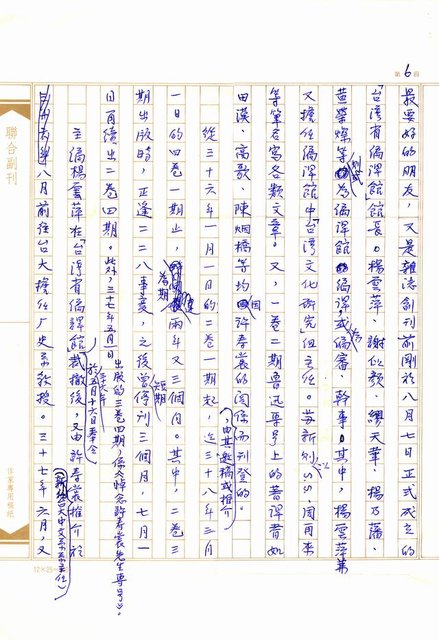 第 6 頁
最要好的朋友，又是雜誌創刊前剛於八月七日正式成立的
「台灣省編譯館」館長。楊雲萍、謝似顏、繆天華、楊乃藩、
黃榮燦等為編譯館編譯，或編審、幹事。其中，楊雲萍兼
又擔任編譯館中「台灣文化研究組」主任。
等筆名寫各類文章。又，一卷二期魯迅專号上的著譯者如
田漢、高歌、陳烟橋等均因許壽裳的関係而刊登的。
，由其邀稿或推介
從三十六年一月一日的二卷一期起，迄三十八年三月
一日的四卷一期止，兩年又三個月。其中，二卷三
期出版時，正逢二二八事変，之後曾停刊三個月，七月一
短期
日再續出二卷四期。此外，三十七年五月一日
出版的三卷四期，係「悼念許壽裳先生專号」。
主編楊雲萍在「台灣省編譯館」裁撤後，又由許壽裳推介於
於五月十六日奉令
八月前往台大擔任厂史系教授。三十七年六月，又
聯合副刊
作家專用稿紙
12×25